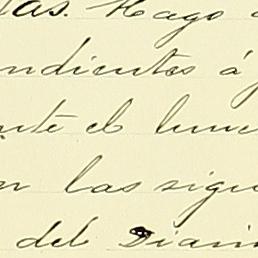 las. Hago
ndientes á
nte el lune
n las sigu
del Diari